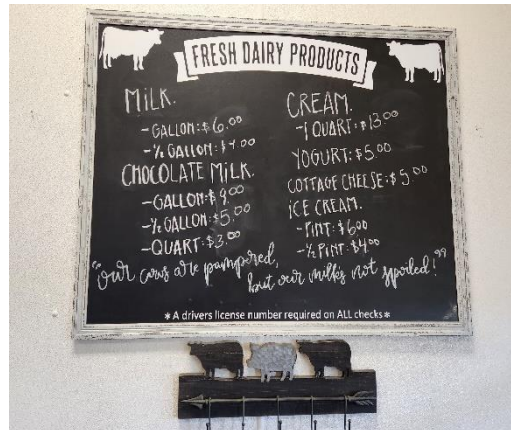 FRESH DAIRY PRODUCTS
MiLK.
-GALLON:$6.00
-½ GALLON:$4.00
CHOCOLATE MiLK.
-GALLON:$9.00
-½ GALLON:$5.00
-QUART:$3.00
CREAM.
-1 QUART:$13.00
YOGURT:$5.00
COTTAGE CHEESE:$5.00
iCE CREAM.
-PINT:$6.00
-½ PINT:$4.00
"our cows are pampered,
but our milks not spoiled!"
*A drivers license number required on ALL checks*